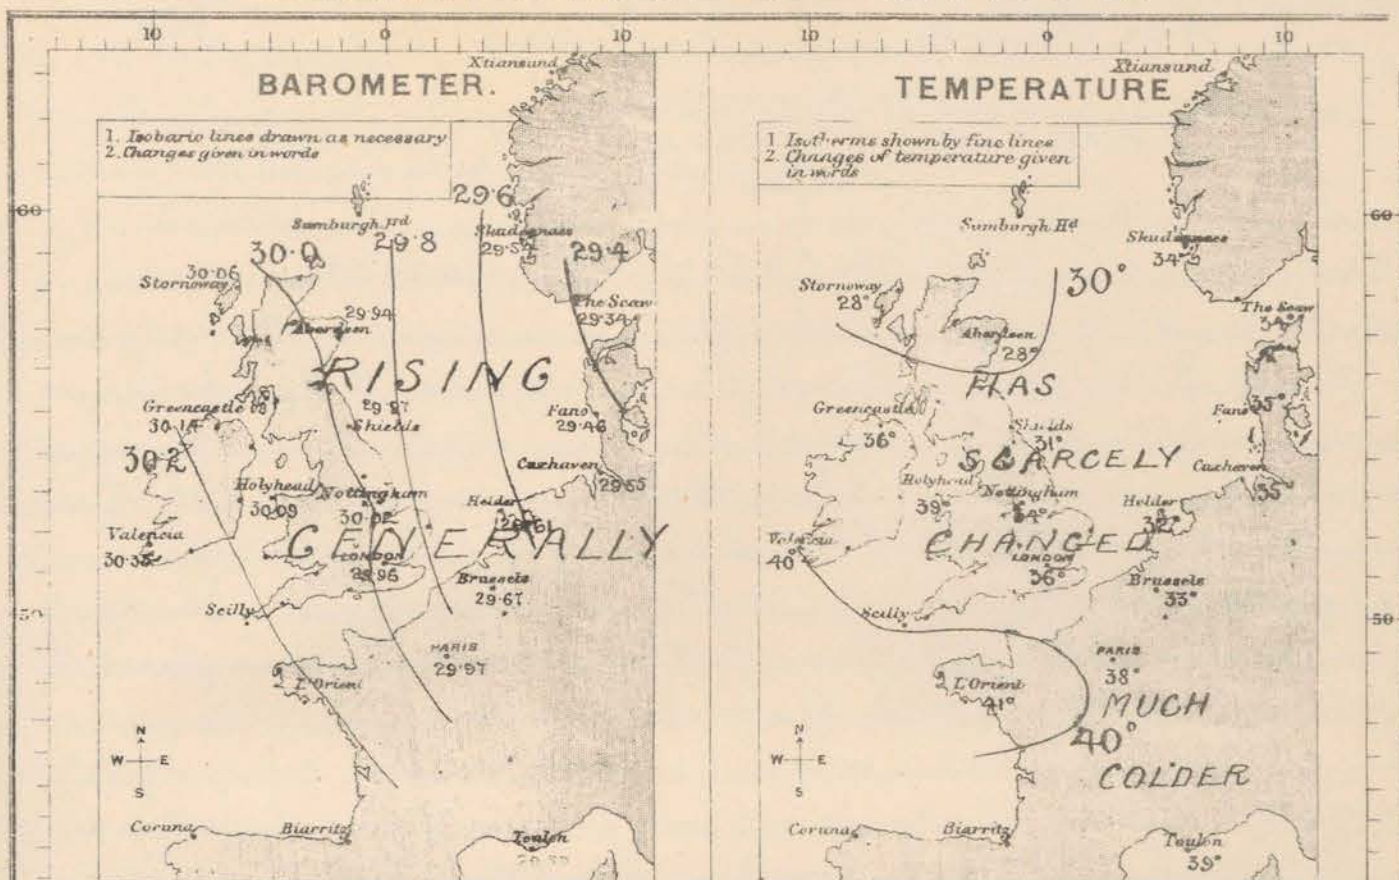 10 0 10
BAROMETER.
Xtiansund
1. Isobaric lines drawn as necessary
2. Changes given in words
29·6
60
Sumburgh Hd
29·8
Skudesnaes
30·0
29·4
30·06
Stornoway
The Scaw
29·34
29·94
Aberdeen
RISING
29·97
Shields
Greencastle
30·14
Fano
29·46
30·2
Cuxhaven
29·55
Holyhead
30·09
Nottingham
30·02
Helder
29·61
Valencia
30·35
GENERALLY
LONDON
29·96
Brussels
29·67
50
Scilly
PARIS
29·97
L'Orient
N
W E
S
Coruna
Biarritz
Toulon
10 0 10
TEMPERATURE
Xtiansund
1 Isotherms shown by fine lines
2. Changes of temperature given
in words
60
Sumburgh Hd
Skudesnaes
34°
30°
Stornoway
28°
The Scaw
34°
Aberdeen
28°
HAS
Greencastle
36°
Fano
35°
Shields
31°
SCARCELY
Cuxhaven
35
Holyhead
39°
Nottingham
34°
Helder
32°
Valencia
40°
CHANGED
LONDON
36°
Brussels
33°
50
Scilly
PARIS
38°
L'Orient
41°
MUCH
40°
COLDER
N
W E
S
Coruna
Biarritz
Toulon
39°